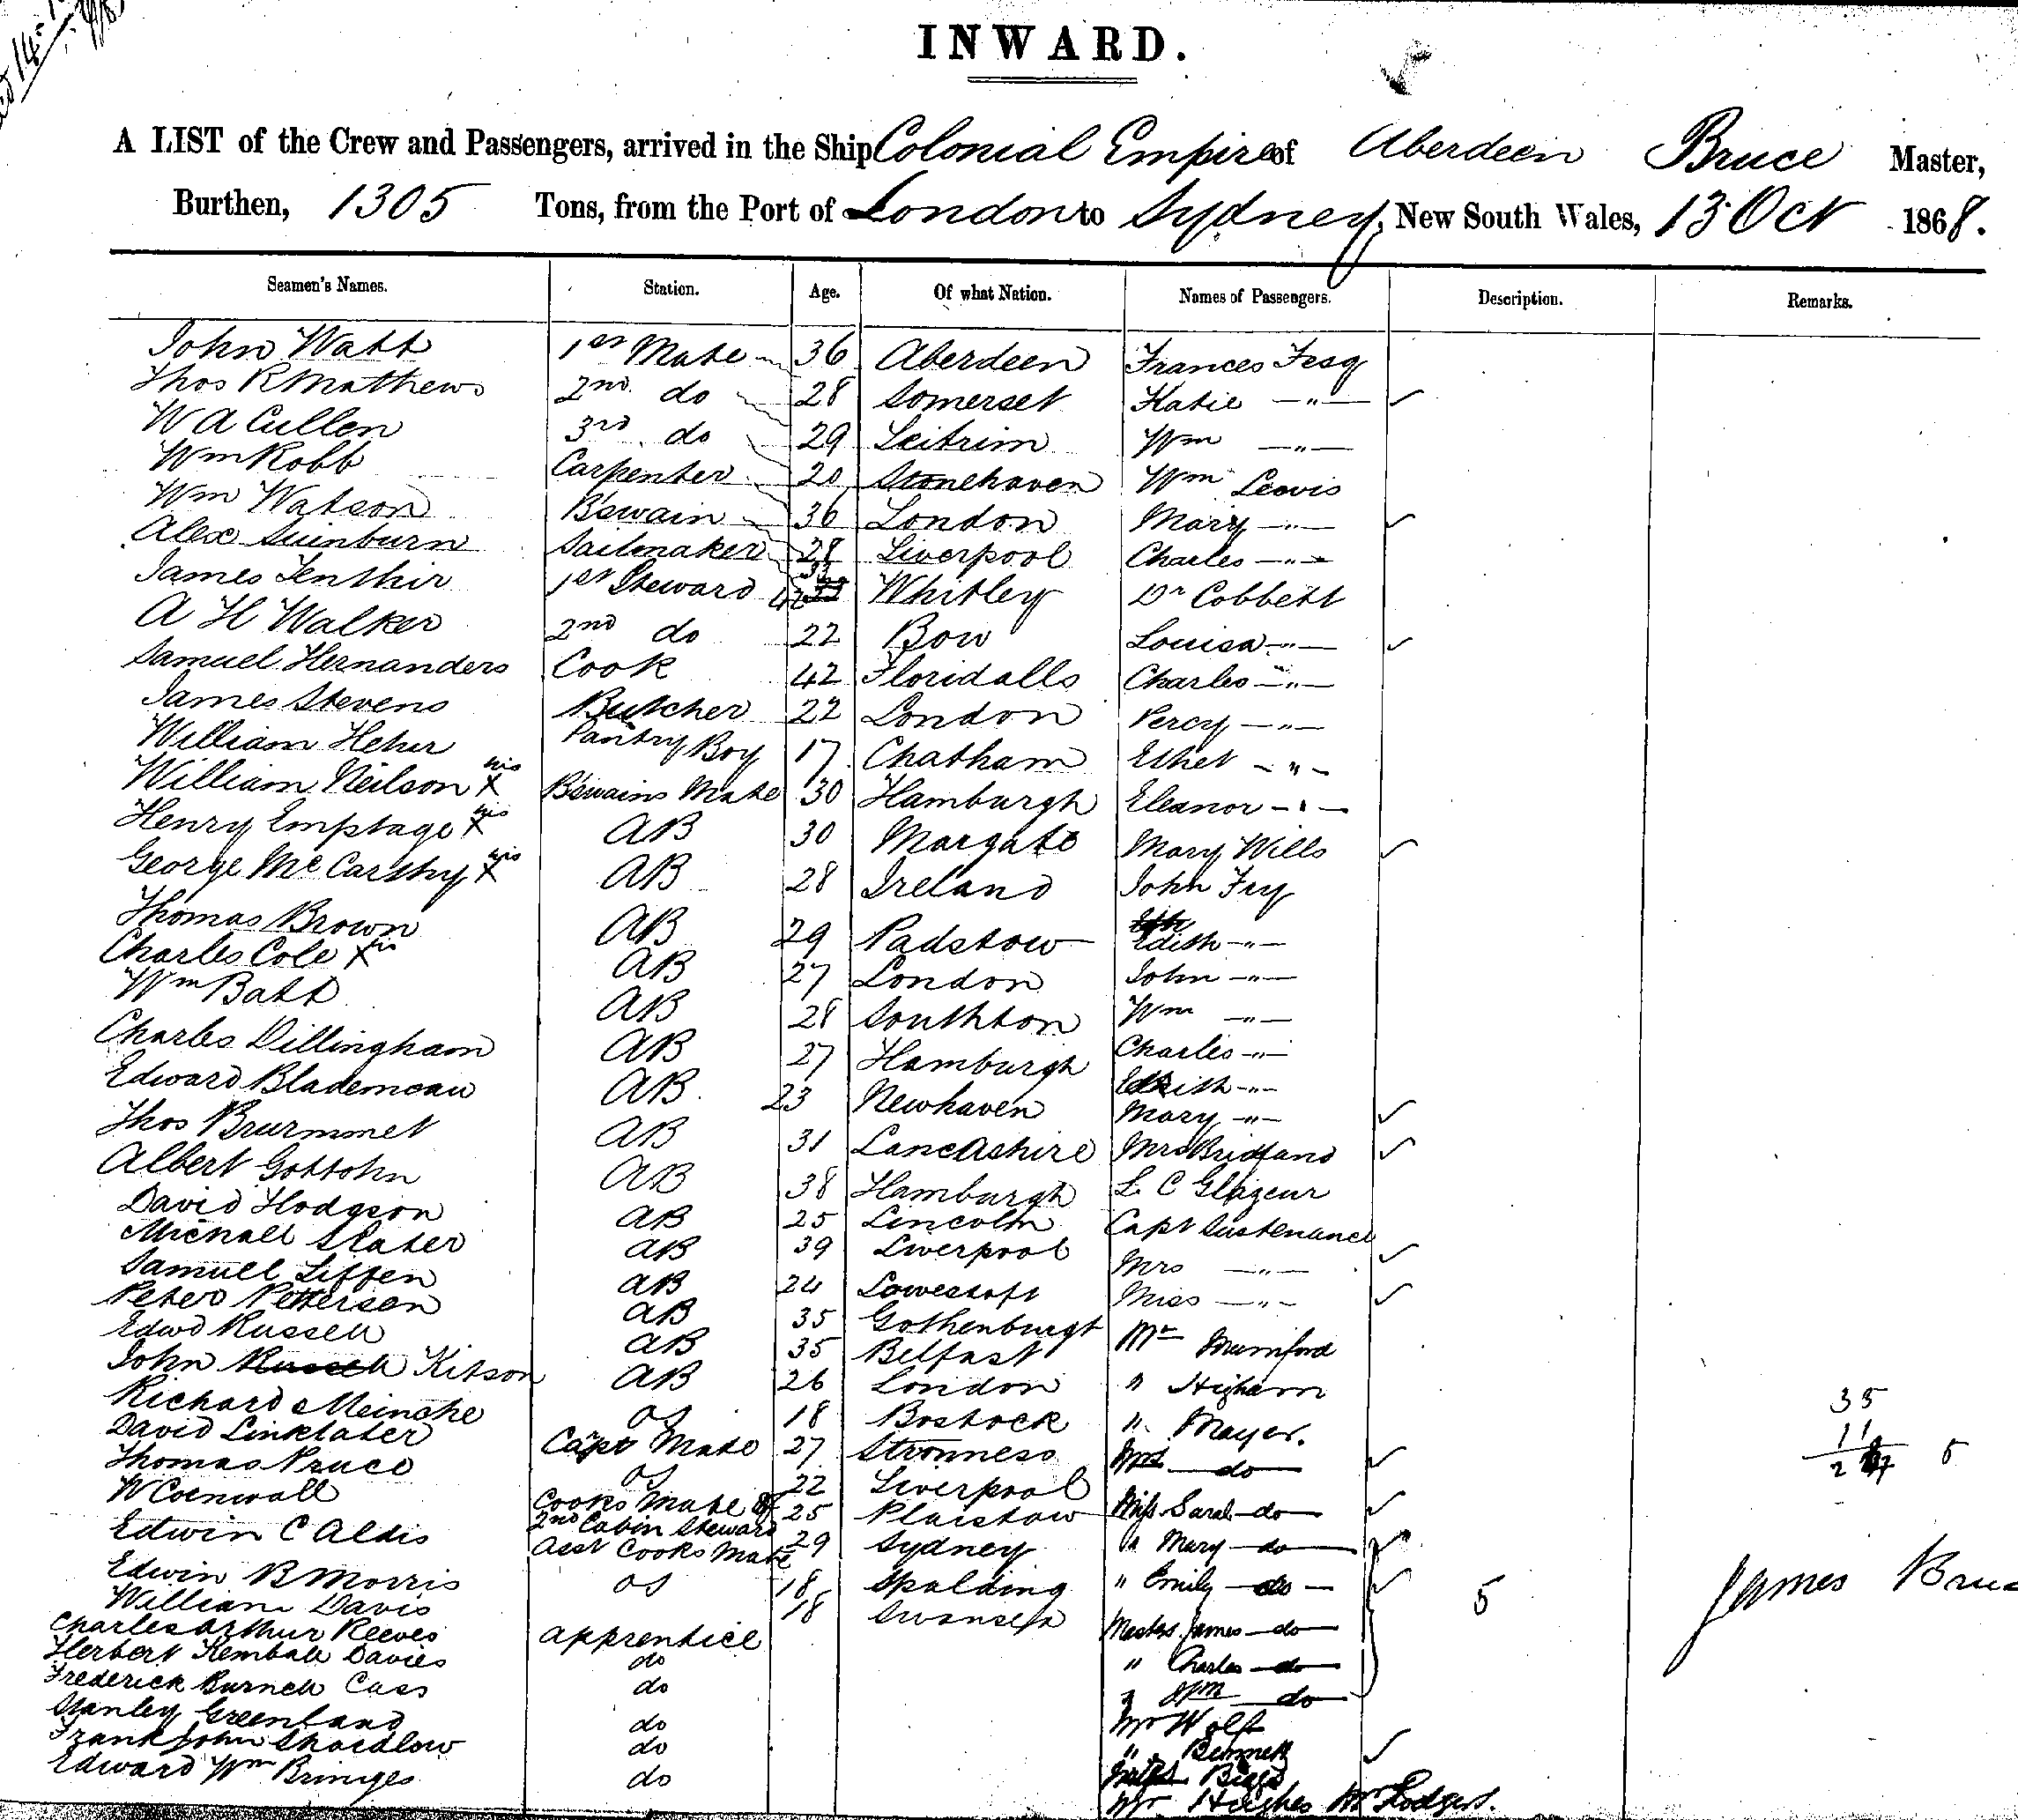 INWARD.
A LIST of the Crew and Passengers, arrived in the Ship Colonial Empire of Aberdeen Bruce Master,
Burthen, 1305 Tons, from the Port of London to Sydney, New South Wales, 13 Oct 1868.
Seamen's Names. Station. Age. Of what Nation. Names of Passengers. Description. Remarks.
John Watt 1st Mate 36 Aberdeen Frances Fesq
Thos R Mathews 2nd do 28 Somerset Katie —"—
W A Cullen 3rd do 29 Leitrim Wm —"—
Wm Robb Carpenter 20 Stonehaven Wm Lewis
Wm Watson B'swain 36 London Mary —"—
Alex Swinburn Sailmaker 28 Liverpool Charles —"—
James 1st Steward 33 Whitley Dr Cobbett
A H Walker 2nd do 22 Bow Louisa —"—
Samuel Hernanders Cook 42 Charles —"—
James Stevens Butcher 22 London Percy —"—
William Pantry Boy 17 Chatham Ethel —"—
William Neilson his X B'swains Mate 30 Hamburgh Eleanor —"—
Henry Emptage his X AB 30 Margate Mary Wills
George McCarthy his X AB 28 Ireland John Fry
Thomas Brown AB 29 Padstow Edith —"—
Charles Cole his X AB 27 London John —"—
Wm Batt AB 28 Southton Wm —"—
Charles Dillingham AB 27 Hamburgh Charles —"—
Edward AB 23 Newhaven Edith —"—
Mary —"—
Thos Brummet AB 31 Lancashire Mrs
Albert Gottohn AB 38 Hamburgh L C
David Hodgson AB 25 Lincoln Capt Sustenance
Michall Slater AB 39 Liverpool Mrs —"—
Samuel Liffen AB 24 Lowestoft Miss —"—
Peter Pettersen AB 35 Gothenburgh Mr Mumford
Edwd Russell AB 35 Belfast
John Kitson AB 26 London " Higham
Richard Meinche OS 18 Rostock " Mayer.
David Linklater Carpt Mate 27 Stromness Mrs —do—
Thomas Pruce OS 22 Liverpool
W Cornwall Cooks Mate & 2nd Cabin Steward 25 Plaistow Miss Sarah —do—
Edwin C Aldis Asst Cooks Mate 29 Sydney " Mary —do—
Edwin B Morris OS 18 Spalding " Emily —do—
William Davis 18 Swansea
Charles Arthur Reeves apprentice Masters James —do—
Herbert Kemball Davies do " Charles —do—
Frederick Burnell Cass do " Wm —do—
Stanley Greenland do Mr Wolff
Frank John Shardlow do " Bennett
Edward Wm Bringes do
Mr Hughes Mr Rodgers.
35
11
5
5
James Bruc